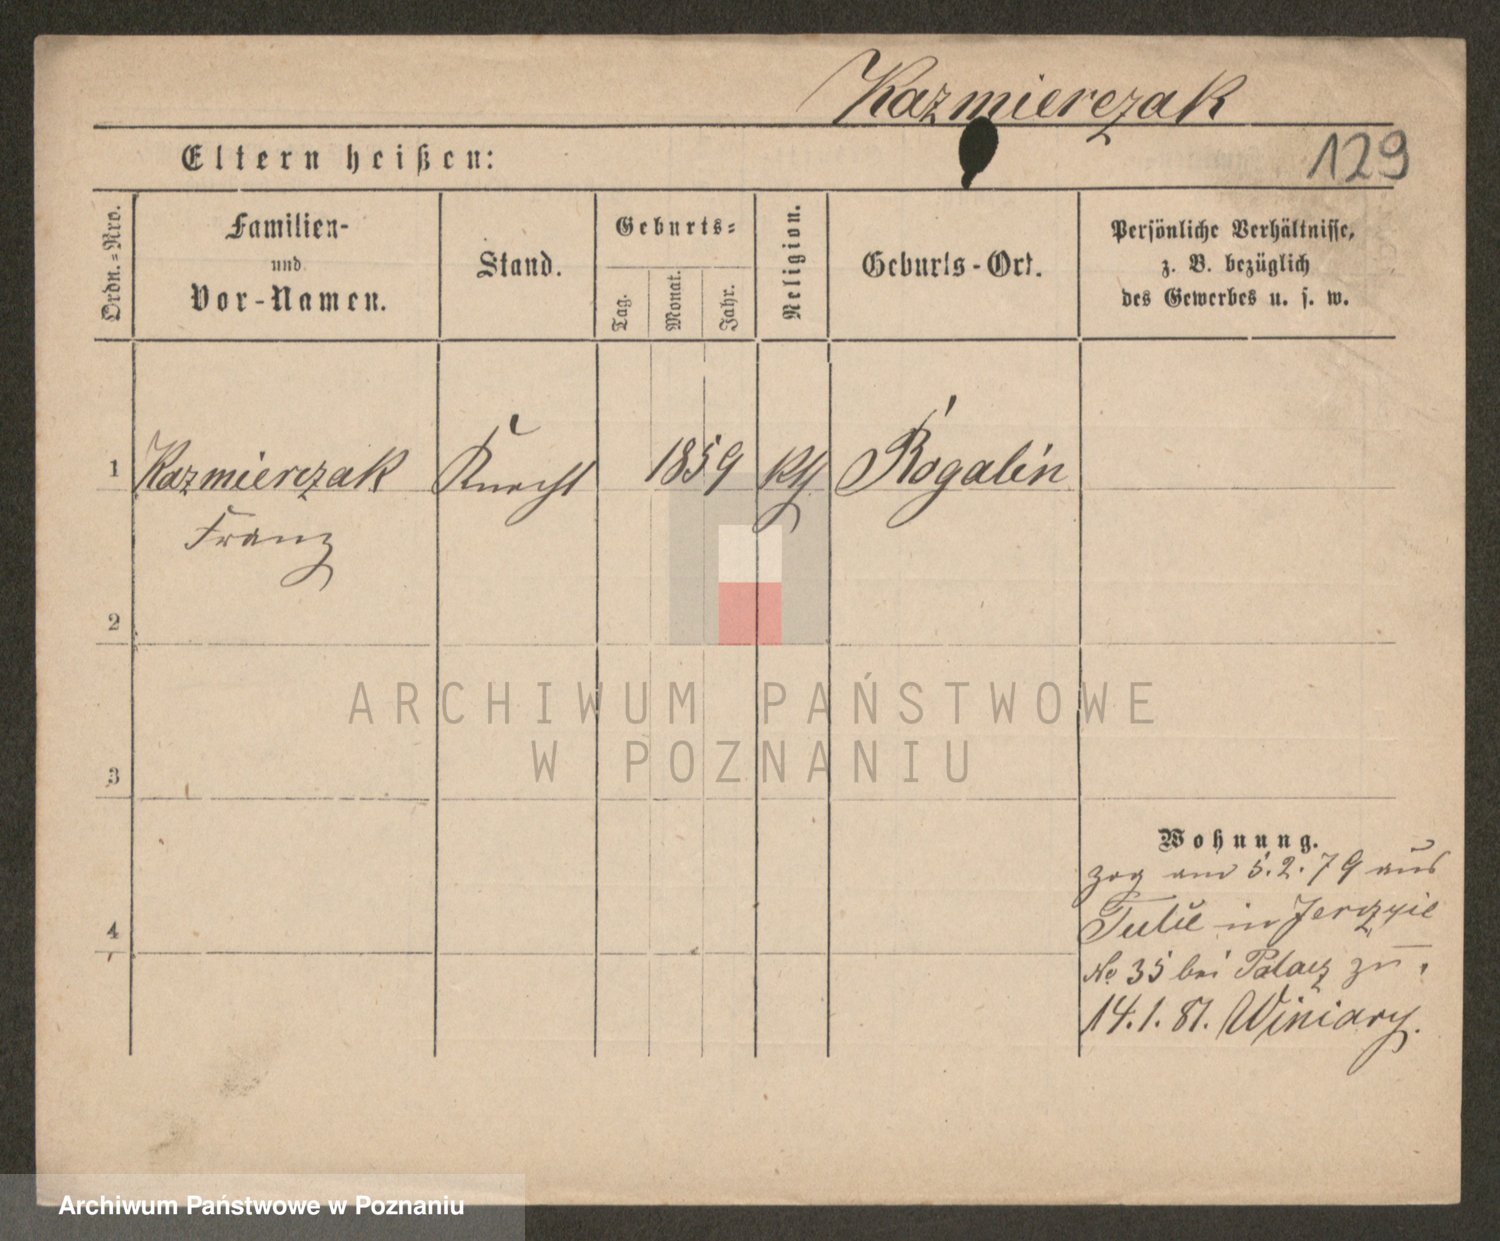 Kazmierczak
Eltern heißen:
129
Ordn.=Nro.
Familien-
und
Vor-Namen.
Stand.
Geburts=
Tag.
Monat.
Jahr.
Religion.
Geburts-Ort.
Persönliche Verhältnisse,
z. B. bezüglich
des Gewerbes u. s. w.
1
Kazmierczak
Franz
Knecht
1859
Kth
Rogalin
2
ARCHIWUM PAŃSTWOWE
W POZNANIU
3
Wohnung.
zog am 5.2.79 aus
in
4
No 35 bei Palacz zu.
14.1.81. Winiary.
Archiwum Państwowe w Poznaniu